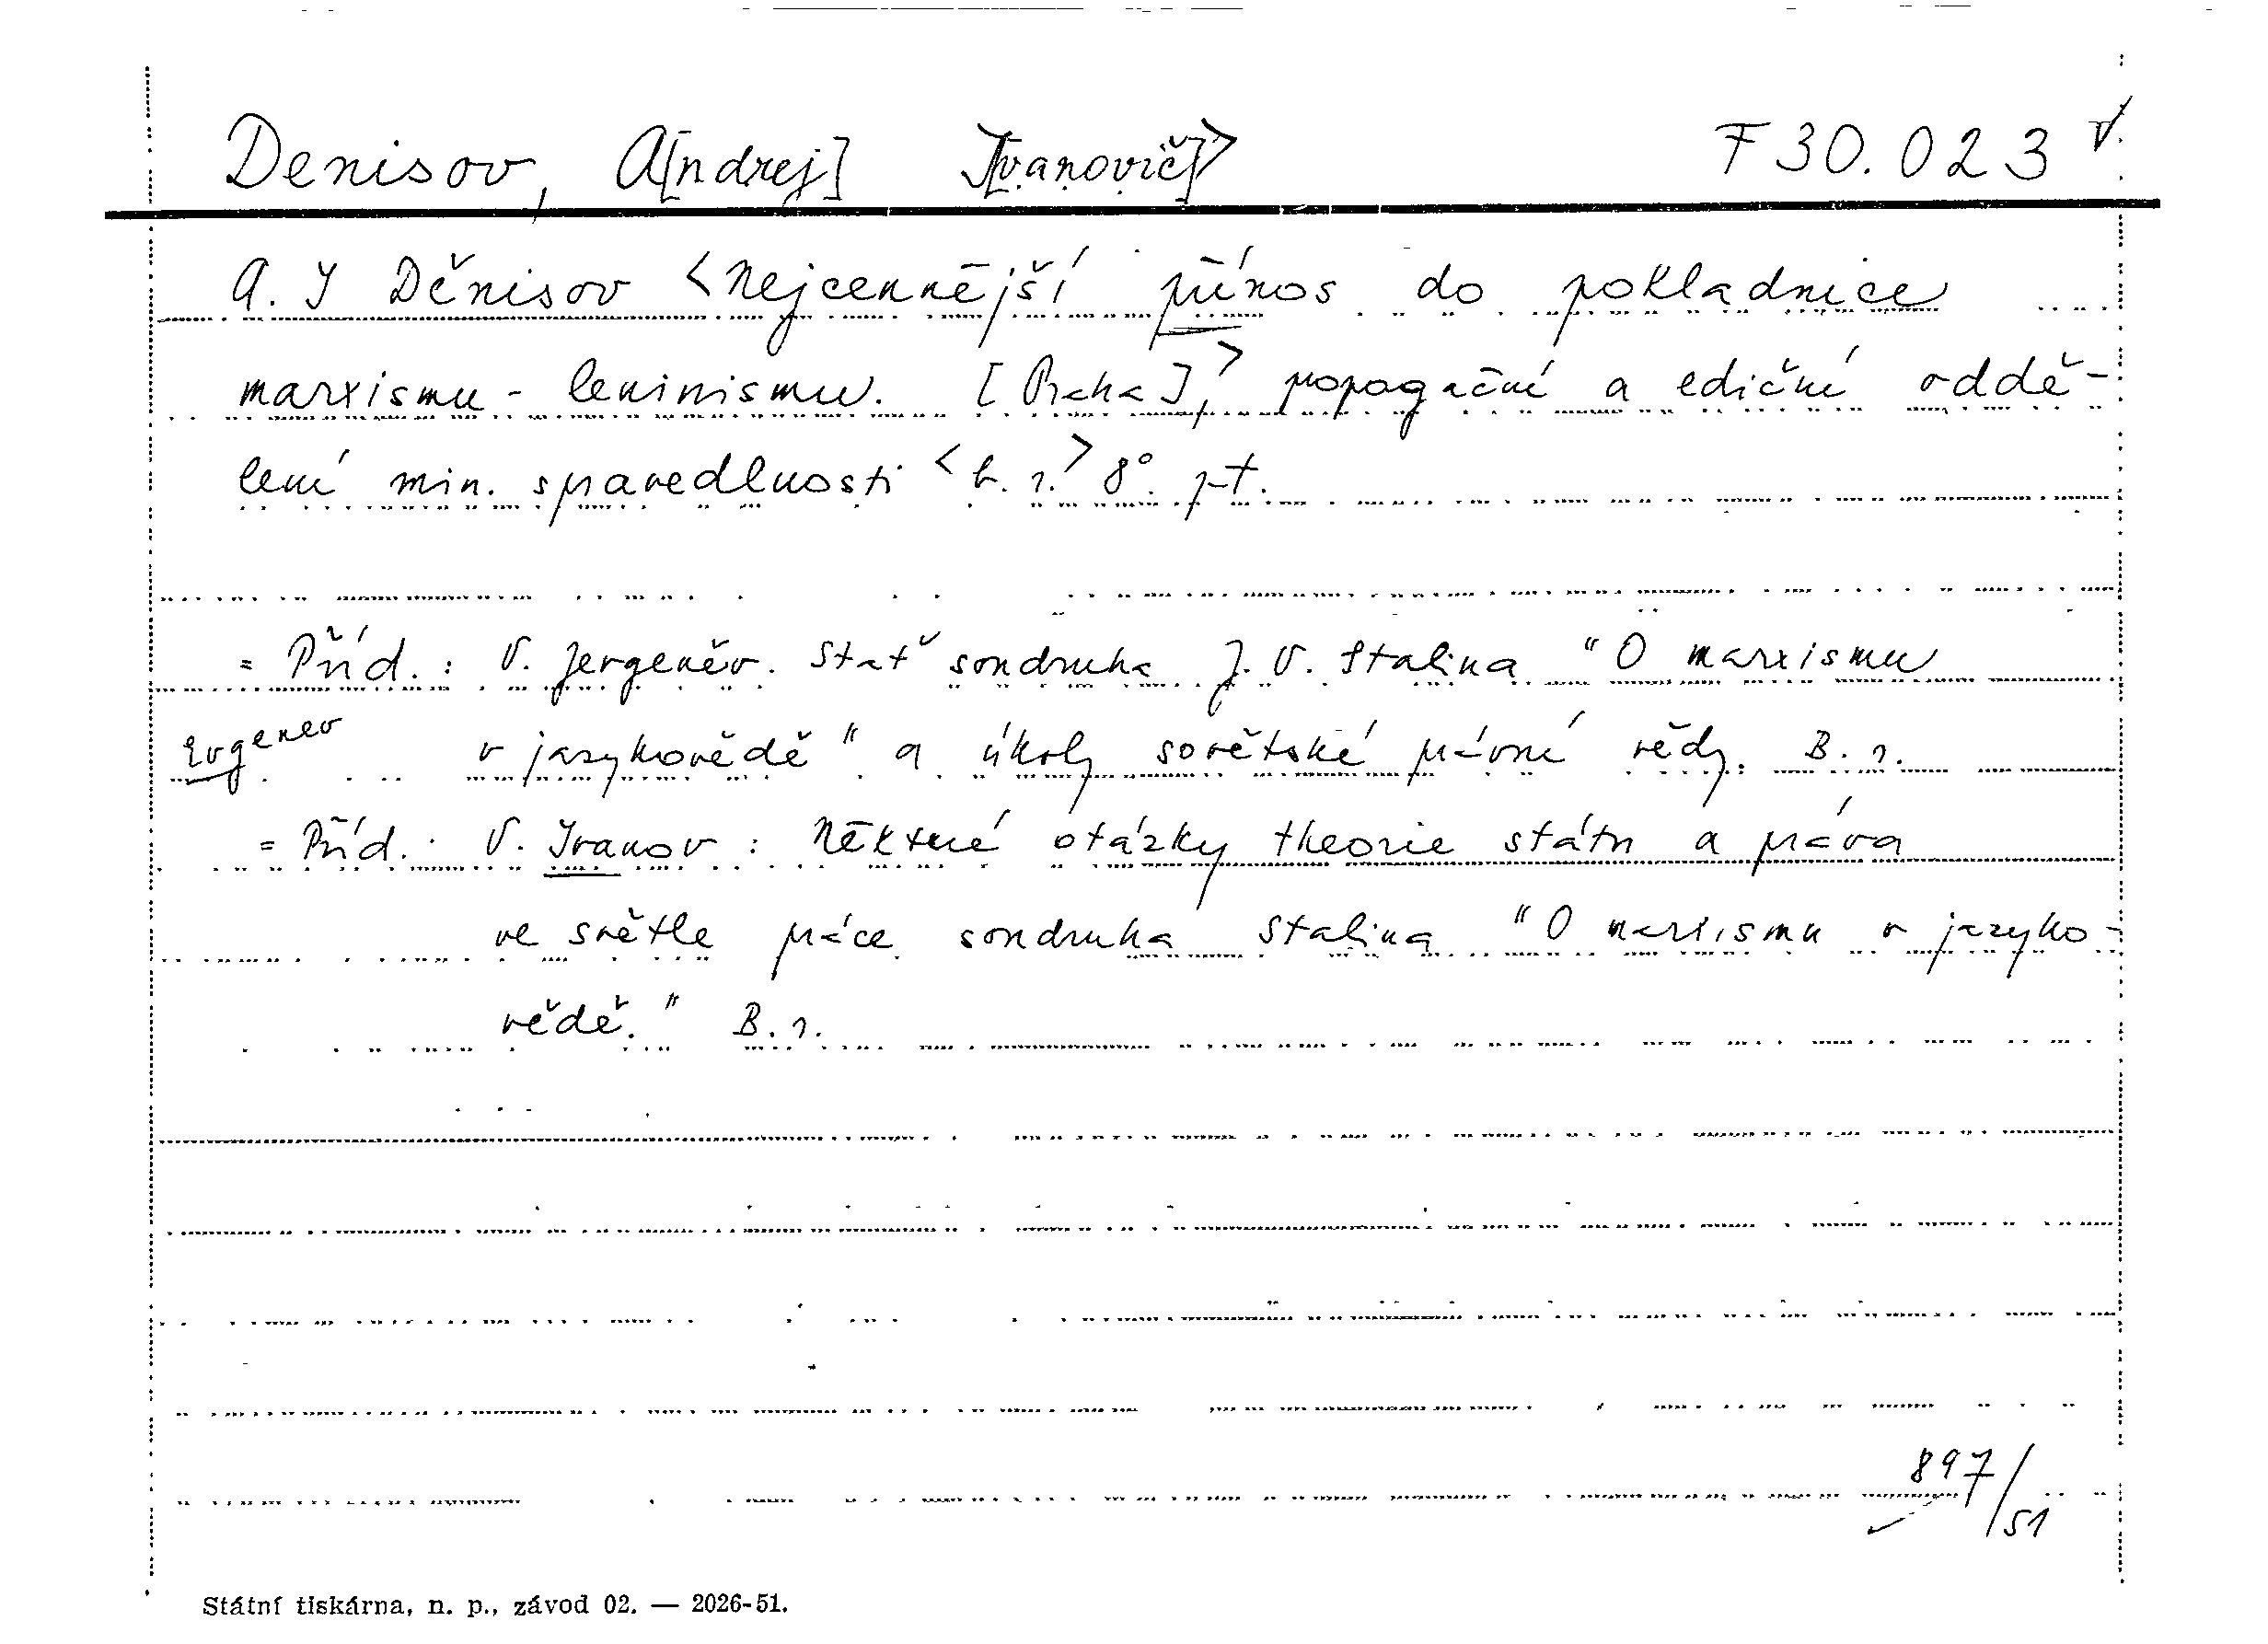 Denisov, A[ndrej] I[vanovič]> F 30.023
A. I Děnisov <Nejcennější přínos do pokladnice
marxismu - leninismu. [Praha],> propagační a ediční oddě-
lení min. spravedlnosti <b. r.> 8°.
= Příd.: V. Jergeněv. Stať soudruha J. V. Stalina "O marxismu
Evgenev v jazykovědě" a úkoly sovětské právní vědy. B. r.
= Příd.: V. Ivanov: Některé otázky theorie státu a práva
ve světle práce soudruha Stalina "O marxismu v jazyko-
vědě." B. r.
897/51
Státní tiskárna, n. p., závod 02. — 2026-51.